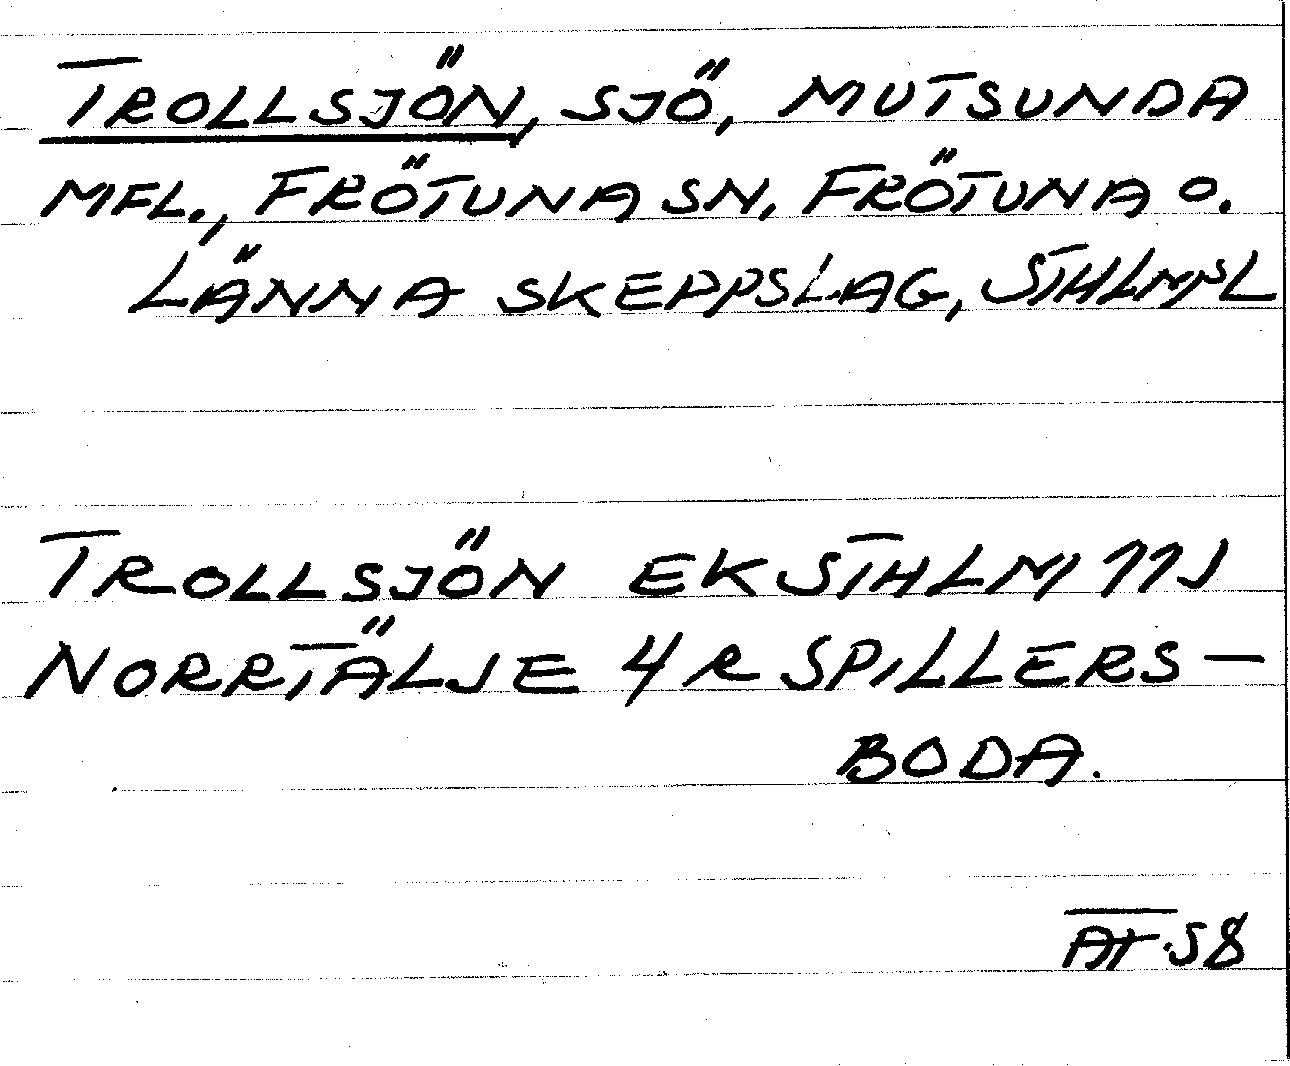 TROLLSJÖN, SJÖ, MUTSUNDA
MFL., FRÖTUNA SN, FRÖTUNA O.
LÄNNA SKEPPSLAG, STHLMSL
TROLLSJÖN EK STHLM 11J
NORRTÄLJE 4 R SPILLERS-
BODA.
58